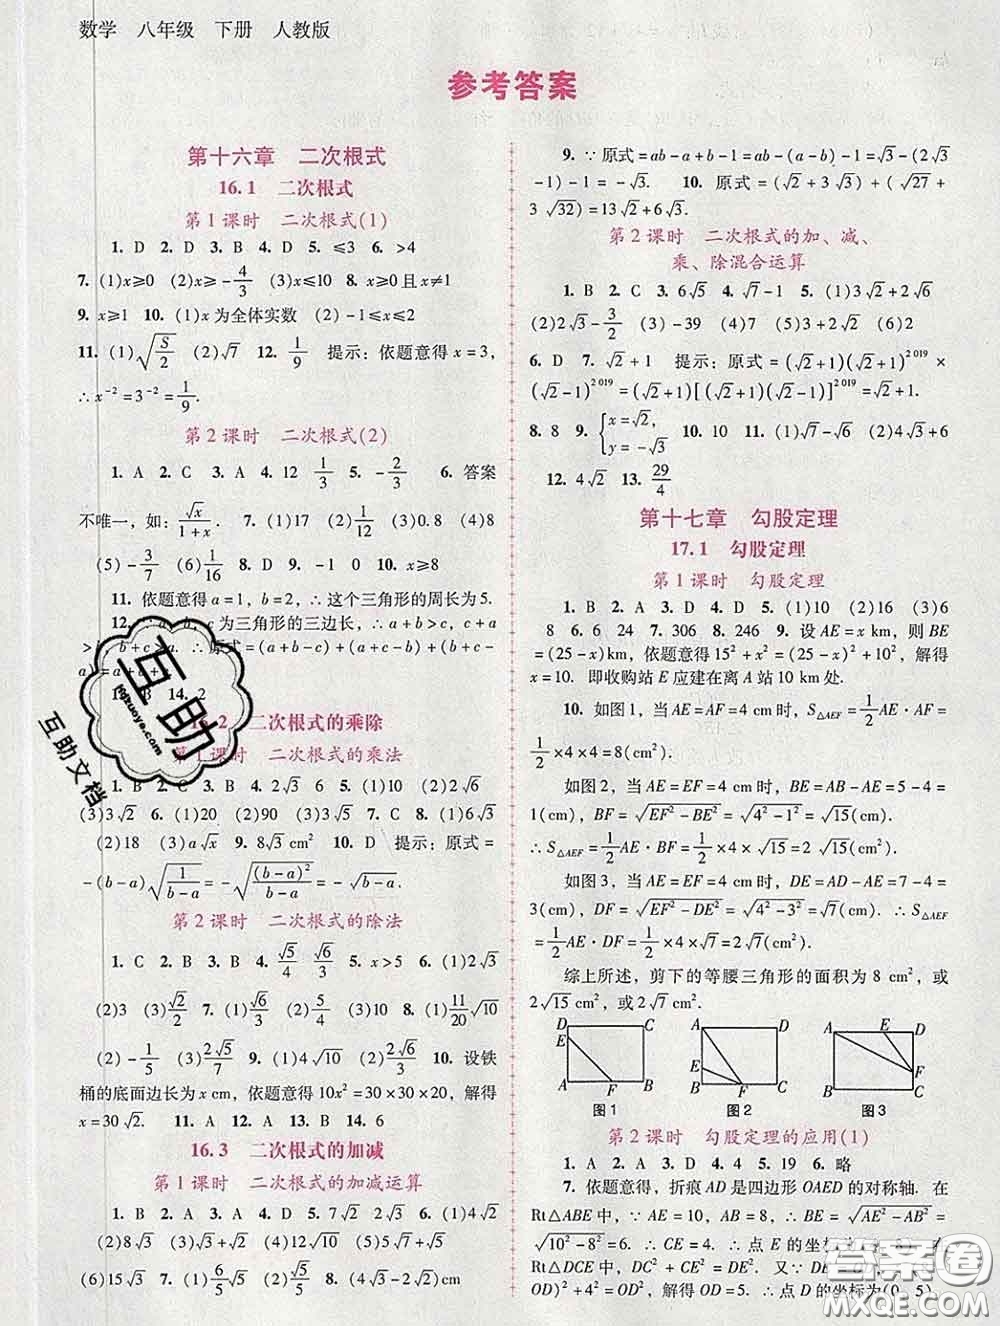 数学 八年级 下册 人教版
参考答案
第十六章 二次根式
16.1 二次根式
第1课时 二次根式(1)
1. D 2. D 3. B 4. D 5. ≤3 6. >4
7. (1)x≥0 (2)x≥-4/3 (3)x≤10 8. x≥0且x≠1
9. x≥1 10. (1)x为全体实数 (2)-1≤x≤2
11. (1)√(S/2) (2)√7 12. 1/9 提示：依题意得x=3,
∴x⁻²=3⁻²=1/9.
第2课时 二次根式(2)
1. A 2. C 3. A 4. 12 1/3 5. -2/3 6. 答案
不唯一，如：√x/(1+x). 7. (1)17 (2)1/12 (3)0.8 (4)8
(5)-3/7 (6)1/16 8. D 9. -1 0 10. x≥8
11. 依题意得a=1, b=2, ∴这个三角形的周长为5.
12. c为三角形的三边长，∴a+b>c, c+a
原式=(a+b-c)+(a+b+c-
14. 2
16.2 二次根式的乘除
第1课时 二次根式的乘法
1. B 2. C 3. B 4. 2√3 6 5. (1)10 (2)2
(3)3√2 6. (1)20 (2)90 (3)3√2 7. C 8. (1)15
(2)18 (3)a√x 9. 8√3 cm² 10. D 提示：原式=
-(b-a)√(1/(b-a))=-√((b-a)²/(b-a))=-√(b-a).
第2课时 二次根式的除法
1. C 2. B 3. A 4. √5/4 √6/3 5. x>5 6. (1)2√3
(2)3 (3)√2/2 7. (1)√6/3 (2)5 8. (1)11/20√10
(2)-1/5 (3)2√5/7 9. (1)4√10 (2)2√6/3 10. 设铁
桶的底面边长为x cm, 依题意得10x²=30×30×20, 解得
x=30√2. 11. A 12. A 13. B 14. 6
16.3 二次根式的加减
第1课时 二次根式的加减运算
1. B 2. A 3. D 4. D 5. 7√2 2√3 6. (1)4√2
(2)8√3 (3)√2+√3 (4)10√3 (5)5√7+√5
(6)15√3 7. (1)6/5√5 (2)4√5 8. (2√5+4√2)cm
9. ∵原式=ab-a+b-1=ab-(a-b)-1=√3-(2√3
-1)-1=-√3. 10. 原式=(√2+3√3)+(√27+
3√32)=13√2+6√3.
第2课时 二次根式的加、减、
乘、除混合运算
1. B 2. C 3. 6√5 4. √7-1 5. (1)3√2+2√6
(2)2√3-3/2 (3)-39 (4)7 (5)3+2√2 (6)2
6. D 7. √2+1 提示：原式=(√2+1)(√2+1)²⁰¹⁹×
(√2-1)²⁰¹⁹=(√2+1)[(√2+1)(√2-1)]²⁰¹⁹=√2+1.
8. 8 9. {x=√2, y=-√3 10. 10 11. (1)√7-√6 (2)4√3+6
12. 4√2 13. 29/4
第十七章 勾股定理
17.1 勾股定理
第1课时 勾股定理
1. B 2. A 3. D 4. D 5. (1)10 (2)16 (3)6
8 6. 6 24 7. 306 8. 246 9. 设AE=x km, 则BE
=(25-x)km, 依题意得15²+x²=(25-x)²+10², 解得
x=10. 即收购站E应建在离A站10 km处.
10. 如图1，当AE=AF=4 cm时，S△AEF=1/2AE·AF=
1/2×4×4=8(cm²).
如图2，当AE=EF=4 cm时，BE=AB-AE=5-4=
1(cm), BF=√(EF²-BE²)=√(4²-1²)=√15(cm).
∴S△AEF=1/2AE·BF=1/2×4×√15=2√15(cm²).
如图3，当AE=EF=4 cm时，DE=AD-AE=7-4=
3(cm), DF=√(EF²-DE²)=√(4²-3²)=√7(cm). ∴S△AEF
=1/2AE·DF=1/2×4×√7=2√7(cm²).
综上所述，剪下的等腰三角形的面积为8 cm², 或
2√15 cm², 或2√7 cm².
D C E A F B
A D E B F C
A E D F B C
图1 图2 图3
第2课时 勾股定理的应用(1)
1. A 2. A 3. D 4. 4 5. 19 6. 略
7. 依题意得，折痕AD是四边形OAED的对称轴. 在
Rt△ABE中，∵AE=10, AB=8, ∴BE=√(AE²-AB²)=
√(10²-8²)=6. ∴CE=4. ∴点E的坐标
Rt△DCE中，DC²+CE²=DE². 又∵DE=
OD)²+4²=OD². 解得OD=5. ∴点D的坐标为(0, 5).
互助
hzzuoye.com
互助文档
答案圈
MXQE.COM